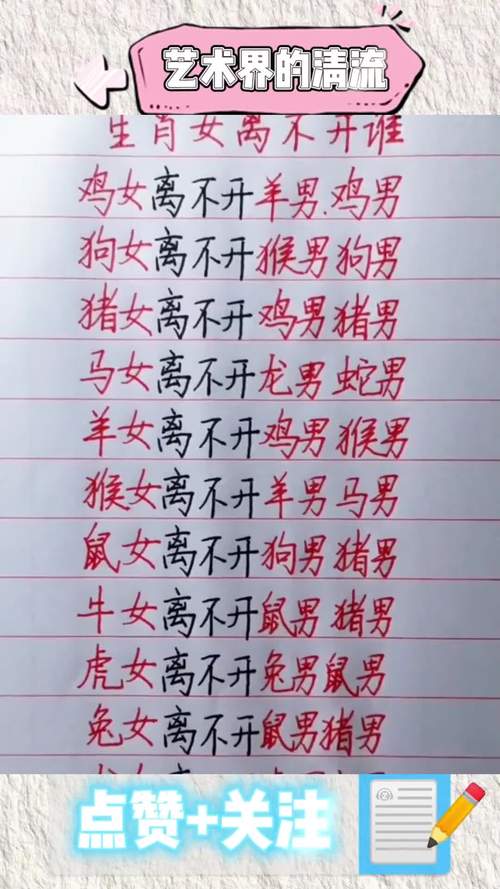 艺术界的清流
生肖女离不开谁
鸡女离不开羊男.鸡男
狗女离不开猴男狗男
猪女离不开鸡男猪男
马女离不开龙男蛇男
羊女离不开鸡男猴男
猴女离不开羊男马男
鼠女离不开狗男猪男
牛女离不开鼠男猪男
虎女离不开兔男鼠男
兔女离不开鼠男猪男
点赞+关注